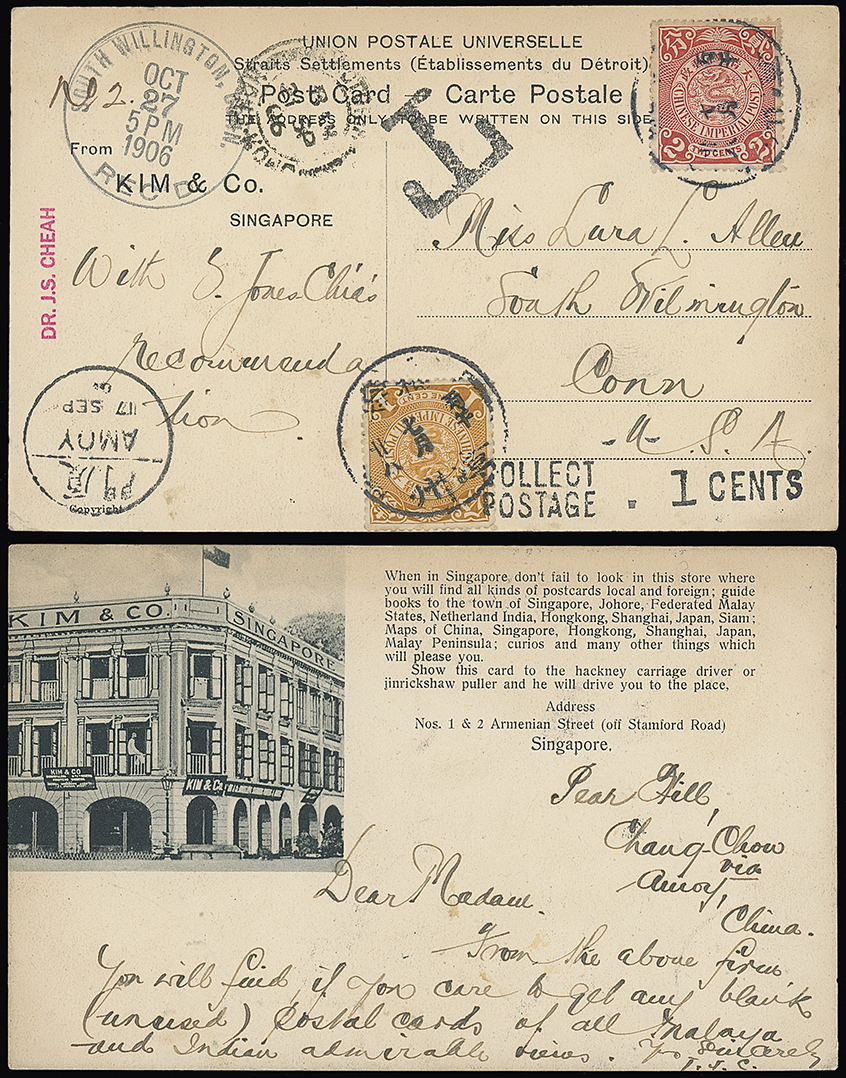 UNION POSTALE UNIVERSELLE
Straits Settlements (Établissements du Détroit)
Post Card — Carte Postale
THE ADDRESS ONLY TO BE WRITTEN ON THIS SIDE
No 2.
SOUTH WILLINGTON, CONN.
OCT
27
5 PM
1906
REC'D
T
CHINESE IMPERIAL POST
2 TWO CENTS 2
From
KIM & Co.
SINGAPORE
DR. J.S. CHEAH
With S. Jones Chia's
recommenda
tion
Miss Lura L. Allen
South Wilmington
Conn
-U. S. A.
17 SEP
AMOY
Copyright
CHINESE IMPERIAL POST
COLLECT
POSTAGE - 1 CENTS
KIM & CO.
SINGAPORE
KIM & CO
KIM & Co.
When in Singapore don't fail to look in this store where
you will find all kinds of postcards local and foreign; guide
books to the town of Singapore, Johore, Federated Malay
States, Netherland India, Hongkong, Shanghai, Japan, Siam;
Maps of China, Singapore, Hongkong, Shanghai, Japan,
Malay Peninsula; curios and many other things which
will please you.
Show this card to the hackney carriage driver or
jinrickshaw puller and he will drive you to the place,
Address
Nos. 1 & 2 Armenian Street (off Stamford Road)
Singapore.
Pear Hill,
Chang-Chow
via
Amoy,
China.
Dear Madam.
From the above firm
You will find, if you care to get any blank
(unused) postal cards of all Malaya
and Indian admirable views. Yrs Sincerely